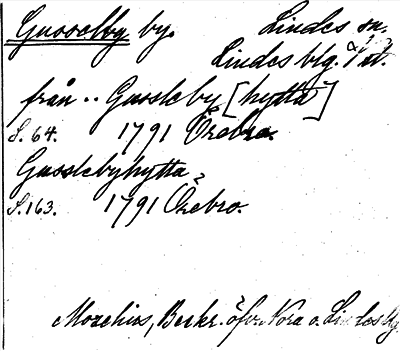 Gusselby by. Lindes sn.
Lindes blg.
från .. Gussleby [hytta]
S. 64. 1791 Örebro.
Gusslebyhytta
S. 163. 1791 Örebro.
Beskr. öfv. Nora o. Lindesbg